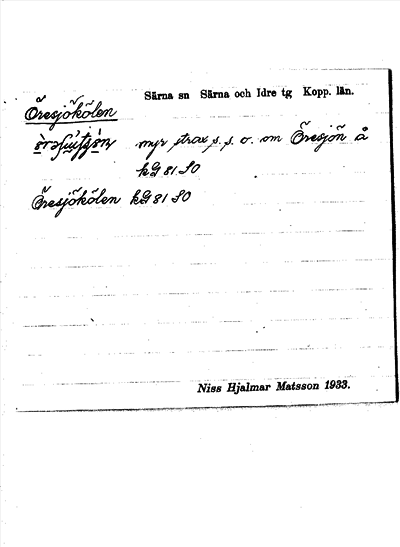 Öresjökölen
Särna sn Särna och Idre tg Kopp. län.
myr strax s. s. o. om Öresjön å
kG 81 SO
Öresjökölen kG 81 SO
Niss Hjalmar Matsson 1933.